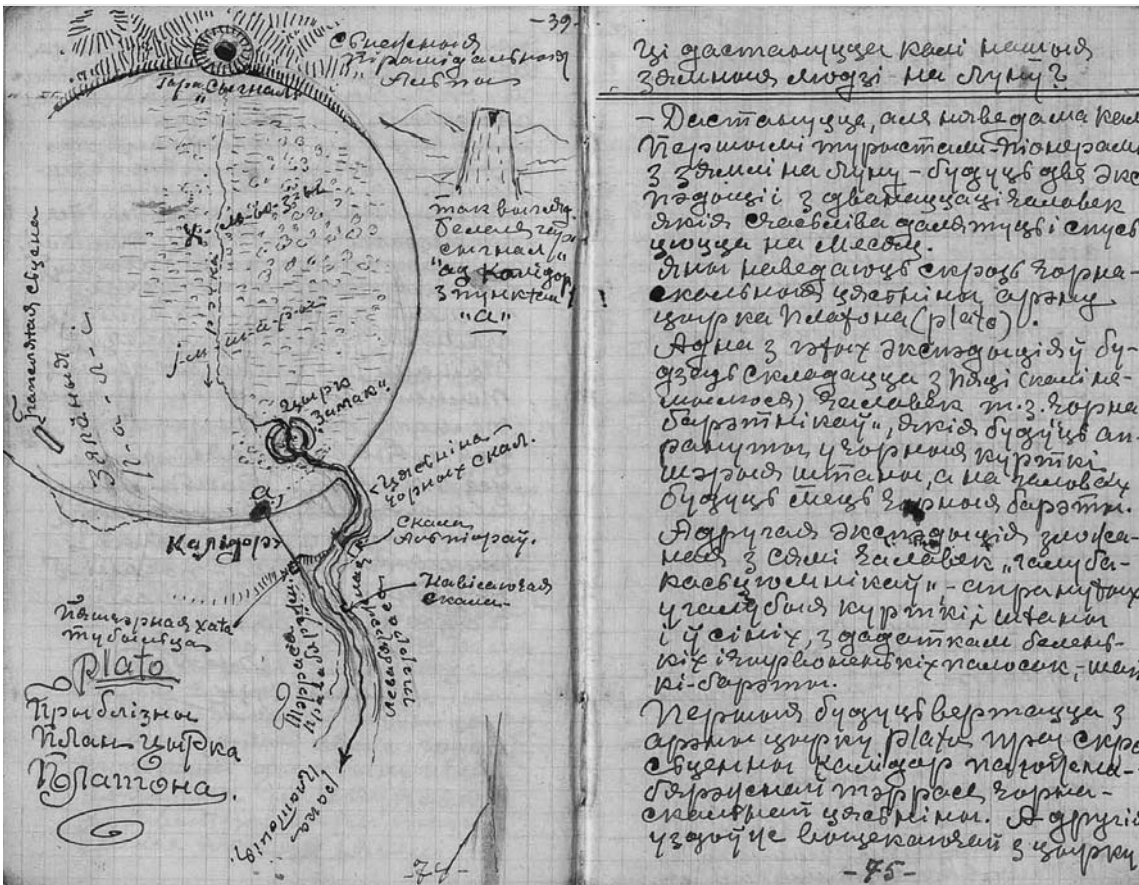 -39-
Сьнежныя
Пірамідальныя
Альпы
Гара "Сыгнал"
так выгляд.
белая гара
сыгнал"
"ад Калідор
з пункта
"а"
Прамятая сцена
рэчка
Зялёныя
п-а-л-і
Цырк
"Замак"
а
Калідор
Цясьніна
чорных скал.
скала
Альпіораў.
Навісаючая
скала
Пяшчэрная хата
тубыльца
Тэраса
Правабярэжная
Левабярэжная
Рака
Платонія
Plato
Прыблізны
План цырка
Платона.
-74-
Ці дастануцца калі нашыя
зямныя людзі на Луну?
- Дастануцца, але няведама кал
Першымі турыстамі-піонерамі
з Зямлі на Луну - будуць две экс
пэдыціі з дванаццаці чалавек
якія счасьліва далятуць і спусь
цюцца на Месяц.
Яны наведаюць скрозь чорна-
скальныя цясніны арэну
цырка Платона (plato).
Адна з гэтых экспэдыціяў бу-
дзець складацца з пяці (калі не-
чалавек т.з. чорна
барэтнікаў", якія будуць ап-
рануты у чорныя курткі
шэрыя штаны, а на галовах
будуць мець чорныя барэты.
А другая экспэдыція зложа-
ная з сямі чалавек "галуба-
касьцюмнікаў", - апранутых
у галубыя курткі, штаны
і ў сініх, з дадаткам белень-
кіх і чырвоненькіх палосак, - шап
кі-барэты.
Першыя будуць вертацца з
арэны цырку plato праз скро
сьценны калідор
бярэжнай тэррасе чорна-
скальнай цясьніны. А другія
уздоўж выцекаючай з цырку
-75-